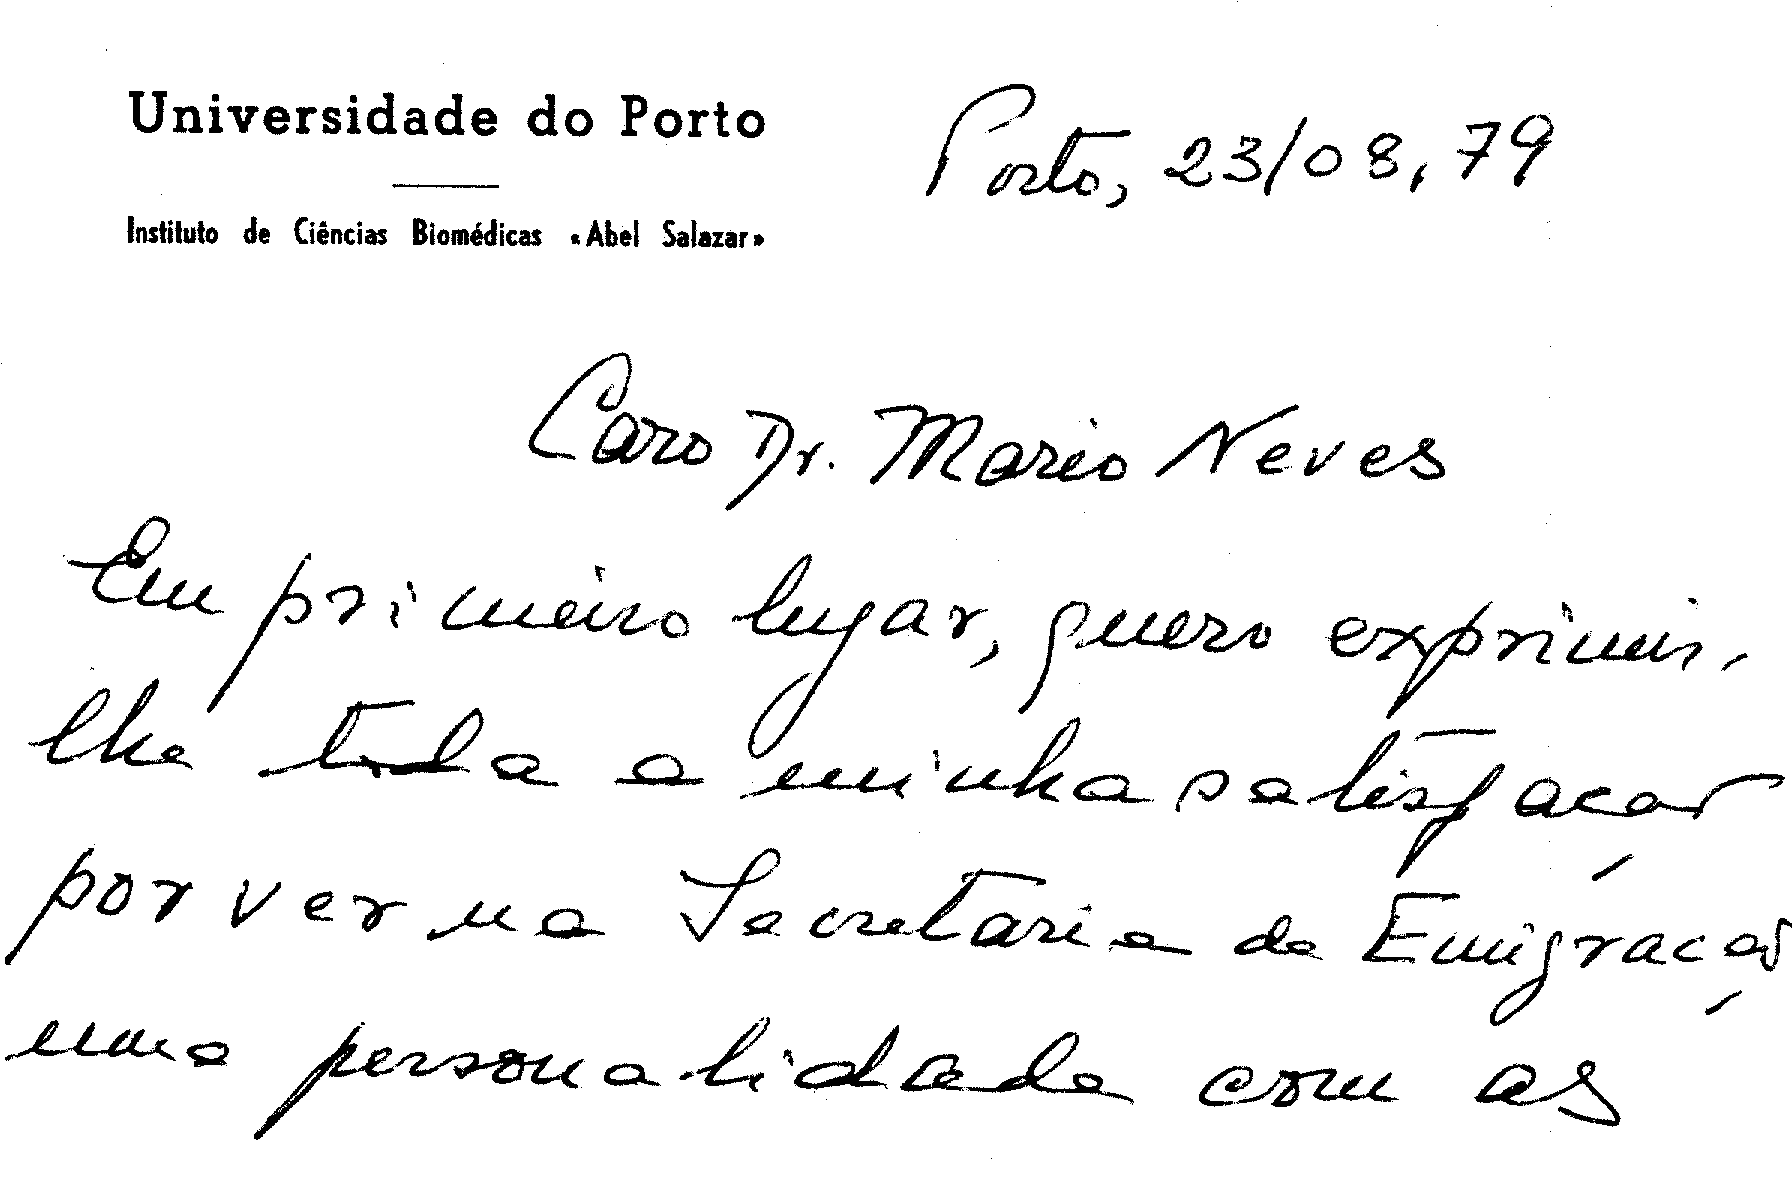 Universidade do Porto
Porto, 23/08, 79
Instituto de Ciências Biomédicas «Abel Salazar»
Caro Dr. Mario Neves
Em primeiro lugar, quero exprimir-
lhe toda a minha satisfação
por ver na Secretaria da Emigração
uma personalidade com as